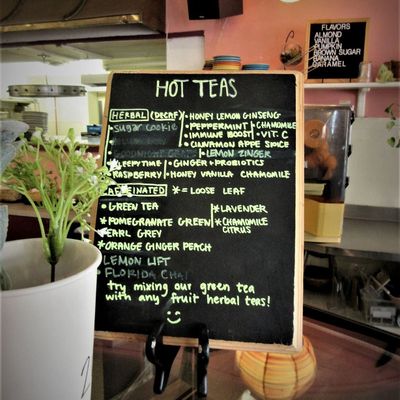 HOT TEAS
HERBAL (DECAF) • HONEY LEMON GINSENG
• SUGAR COOKIE • PEPPERMINT • CHAMOMILE
• IMMUNE BOOST • VIT. C
• CINNAMON APPE SPICE
• LEMON ZINGER
SLEEPYTIME • GINGER + PROBIOTICS
RASPBERRY • HONEY VANILLA CHAMOMILE
CAFFEINATED * = LOOSE LEAF
* GREEN TEA * LAVENDER
* POMEGRANATE GREEN * CHAMOMILE CITRUS
* EARL GREY
* ORANGE GINGER PEACH
LEMON LIFT
FLORIDA CHAI
try mixing our green tea
with any fruit herbal teas!
FLAVORS
ALMOND
VANILLA
PUMPKIN
BROWN SUGAR
BANANA
CARAMEL